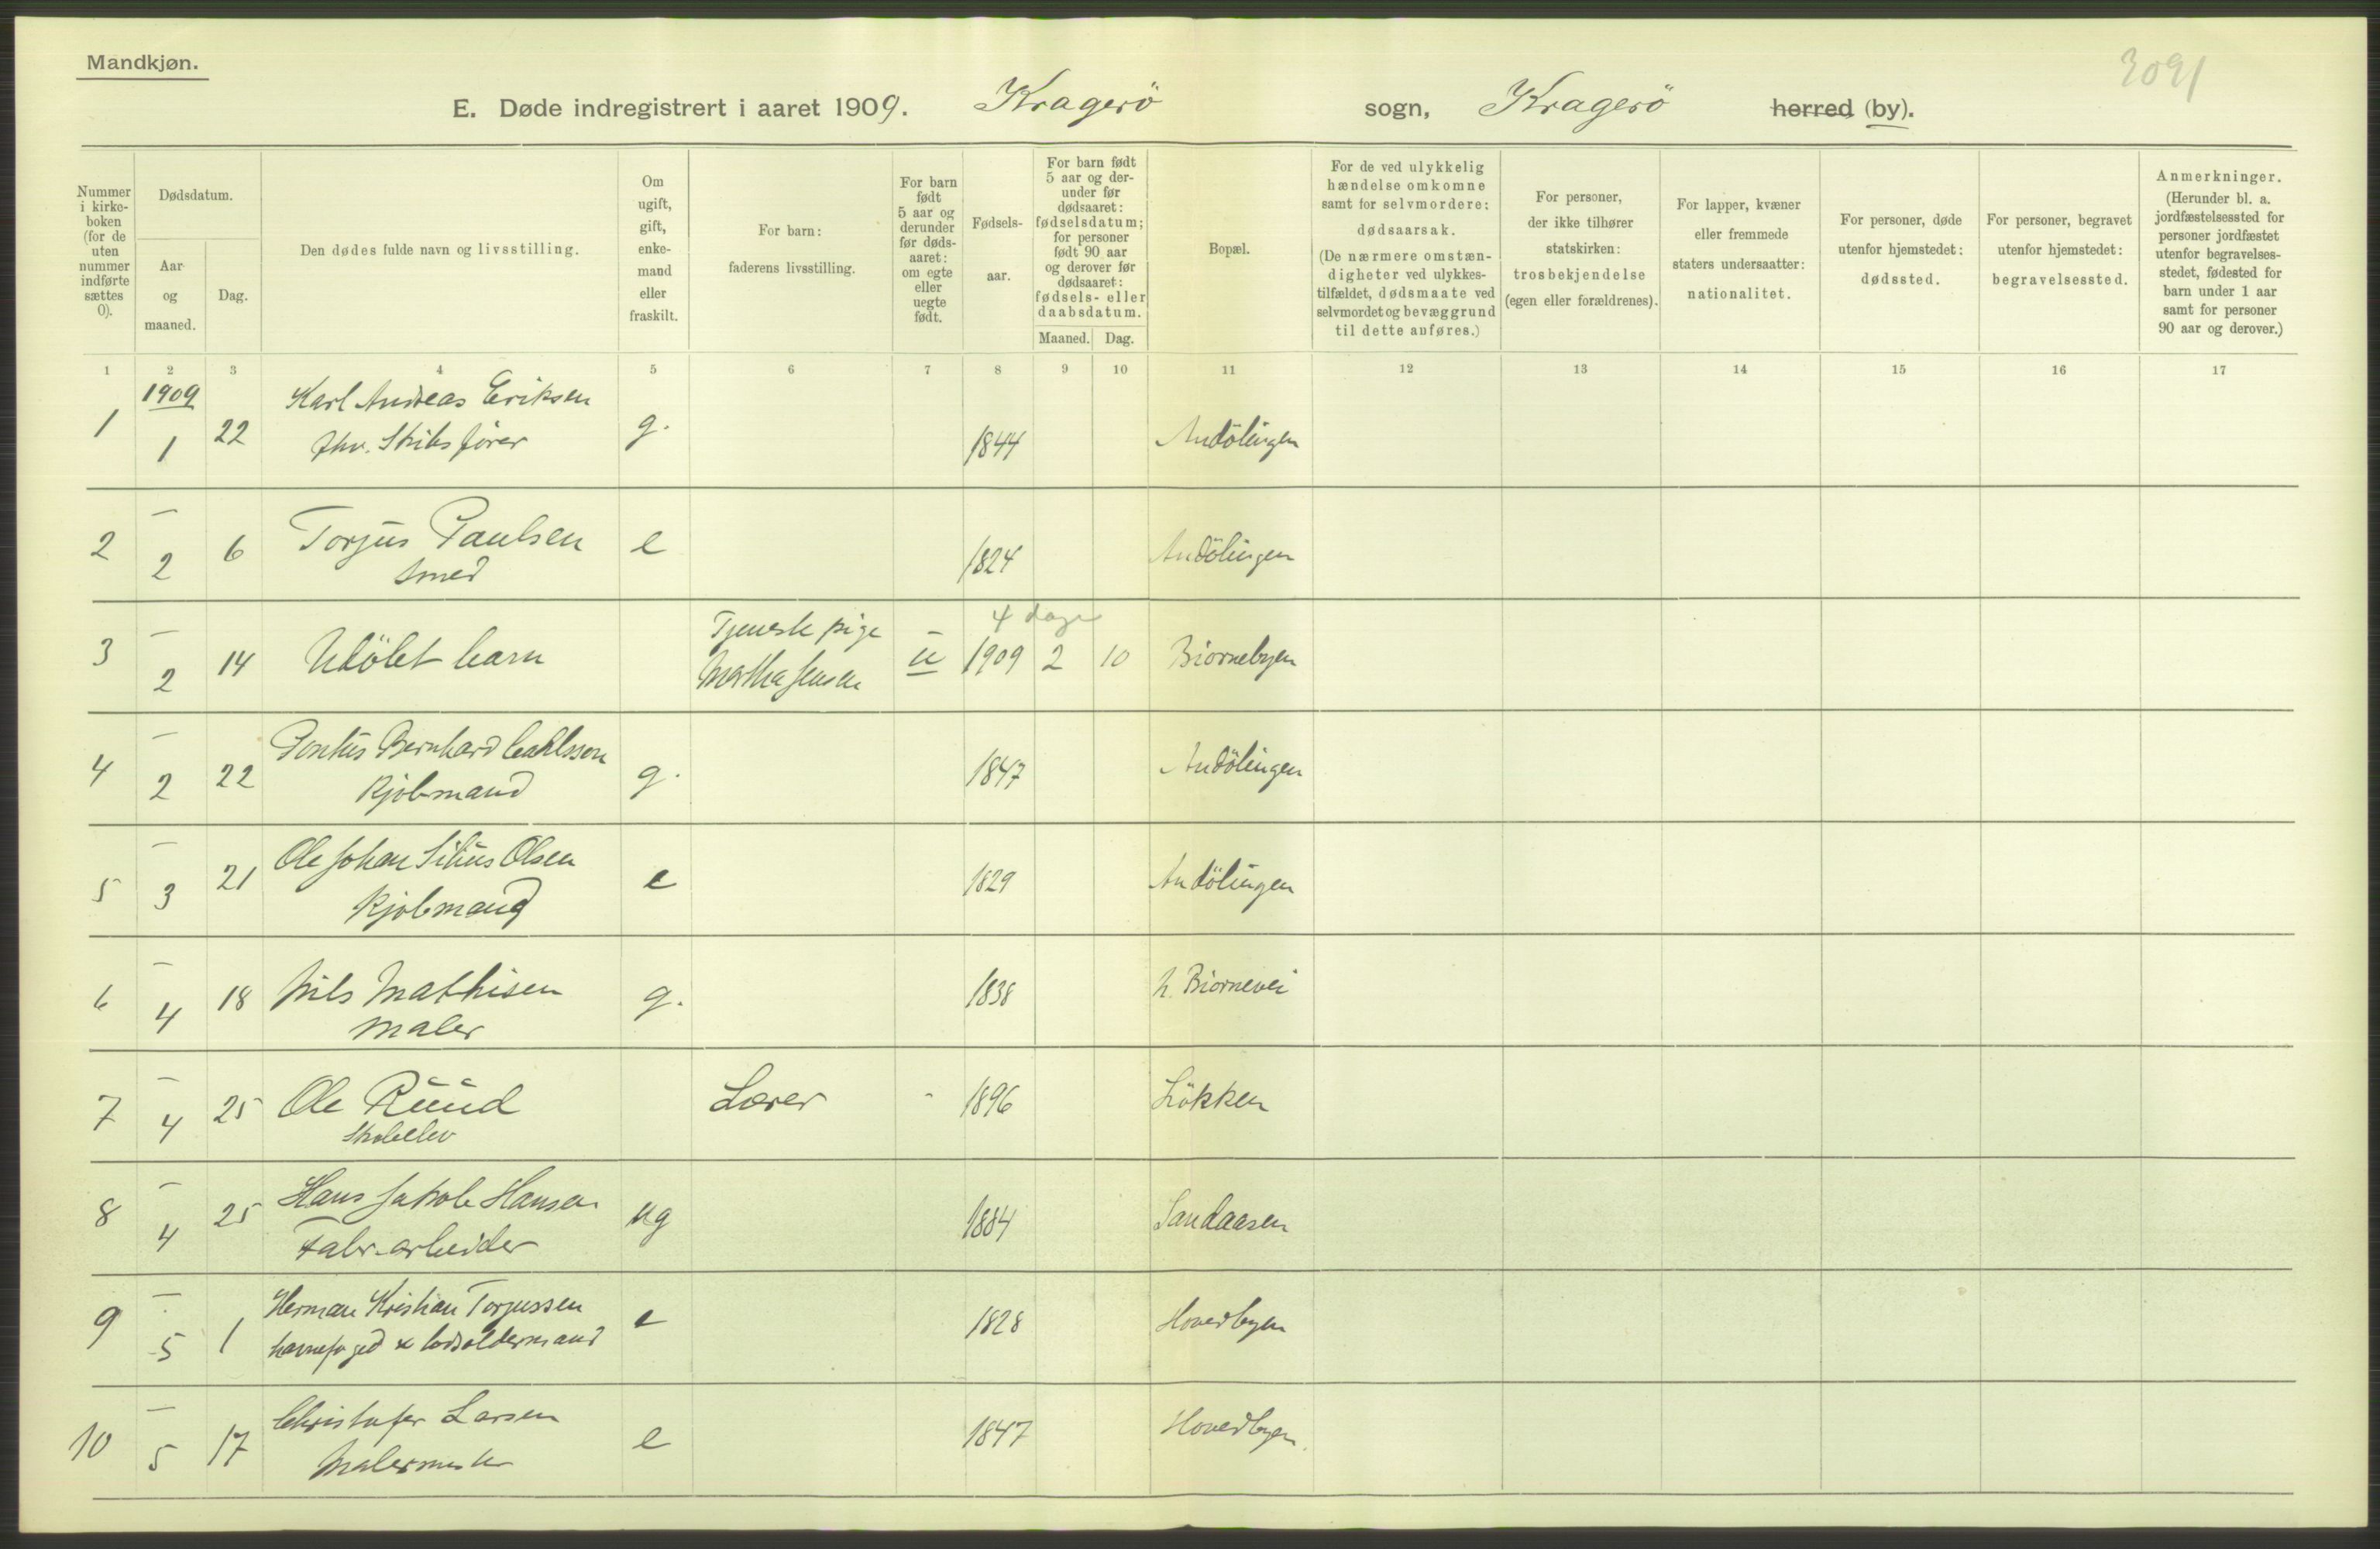 Mandkjøn.
3091
E. Døde indregistrert i aaret 1909. Kragerö sogn, Kragerö herred (by).
Nummer i kirke-boken (for de uten nummer indførte sættes 0).
Dødsdatum.
Aar og maaned.
Dag.
Den dødes fulde navn og livsstilling.
Om ugift, gift, enke-mand eller fraskilt.
For barn: faderens livsstilling.
For barn født 5 aar og derunder før døds-aaret: om egte eller uegte født.
Fødsels-aar.
For barn født 5 aar og der-under før dødsaaret: fødselsdatum; for personer født 90 aar og derover før dødsaaret: fødsels- eller daabsdatum.
Maaned. Dag.
Bopæl.
For de ved ulykkelig hændelse omkomne samt for selvmordere: dødsaarsak. (De nærmere omstæn-digheter ved ulykkes-tilfældet, dødsmaate ved selvmordet og bevæggrund til dette anføres.)
For personer, der ikke tilhører statskirken: trosbekjendelse (egen eller forældrenes).
For lapper, kvæner eller fremmede staters undersaatter: nationalitet.
For personer, døde utenfor hjemstedet: dødssted.
For personer, begravet utenfor hjemstedet: begravelsessted.
Anmerkninger. (Herunder bl. a. jordfæstelsessted for personer jordfæstet utenfor begravelses-stedet, fødested for barn under 1 aar samt for personer 90 aar og derover.)
1 2 3 4 5 6 7 8 9 10 11 12 13 14 15 16 17
1909
Karl Andreas Eriksen
1 1 22 fhv. Skibsfører g. 1844 Andölingen
–
2 2 6 Torjus Paulsen e 1824 Andölingen
Smed
– Tjenestepige – 4 dage
3 2 14 Udöbt barn Martha Jensen u 1909 2 10 Biornebyen
–
Pontus Bernhard Carlsson
4 2 22 Kjöbmand g. 1847 Andölingen
–
Ole Johan Silius Olsen
5 3 21 Kjöbmand e 1829 Andölingen
–
6 4 18 Nils Mathisen g. 1838 N. Biornevei
Maler
–
7 4 25 Ole Ruud Lærer - 1896 Lökken
Skoleelev
–
Hans Jakob Hansen
8 4 25 Fabr.arbeider ug 1884 Sandaasen
–
Herman Kristian Torjussen
9 5 1 havnefoged & lodsoldermand e 1828 Hovedbyen
–
Christofer Larsen
10 5 17 Malermester e 1847 Hovedbyen.